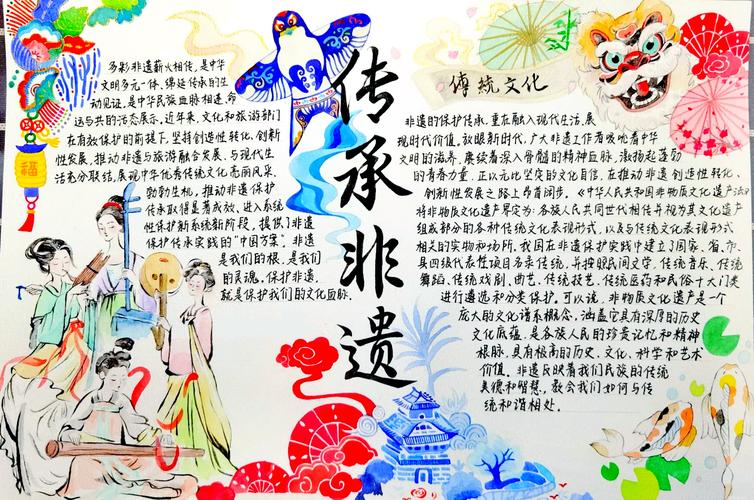 传承非遗
多彩非遗薪火相传,是中华
文明多元一体、绵延传承的生
动见证,是中华民族血脉相连、命
运与共的活态展示。近年来,文化和旅游部门
在有效保护的前提下,坚持创造性转化、创新
性发展,推动非遗与旅游融合发展、与现代生
活充分联结,展现中华优秀传统文化亮丽风采、
勃勃生机,推动非遗保护
传承取得显著成效、进入系统
性保护新阶段,提供了非遗
保护传承实践的“中国方案”。非遗
是我们的根,是我们
的灵魂。保护非遗,
就是保护我们的文化血脉。
福
傳統文化
非遗的保护传承,重在融入现代生活、展
现时代价值。放眼新时代,广大非遗工作者吸吮着中华
文明的滋养,赓续着深入骨髓的精神血脉,激扬起蓬勃
的青春力量,正以无比坚定的文化自信,在推动非遗创造性转化、
创新性发展之路上昂首阔步。《中华人民共和国非物质文化遗产法》
将非物质文化遗产界定为:各族人民共同世代相传并视为其文化遗产
组成部分的各种传统文化表现形式,以及与传统文化表现形式
相关的实物和场所。我国在非遗保护实践中建立了国家、省、市、
县四级代表性项目名录传统,并按照民间文学、传统音乐、传统
舞蹈、传统戏剧、曲艺、传统技艺、传统医药和民俗十大门类
进行遴选和分类保护。可以说,非物质文化遗产是一个
庞大的文化谱系概念,涵盖它具有深厚的历史
文化底蕴,是各族人民的珍贵记忆和精神
根脉,具有极高的历史、文化、科学和艺术
价值。非遗反映着我们民族的传统
美德和智慧,教会我们如何与传
统和谐相处。